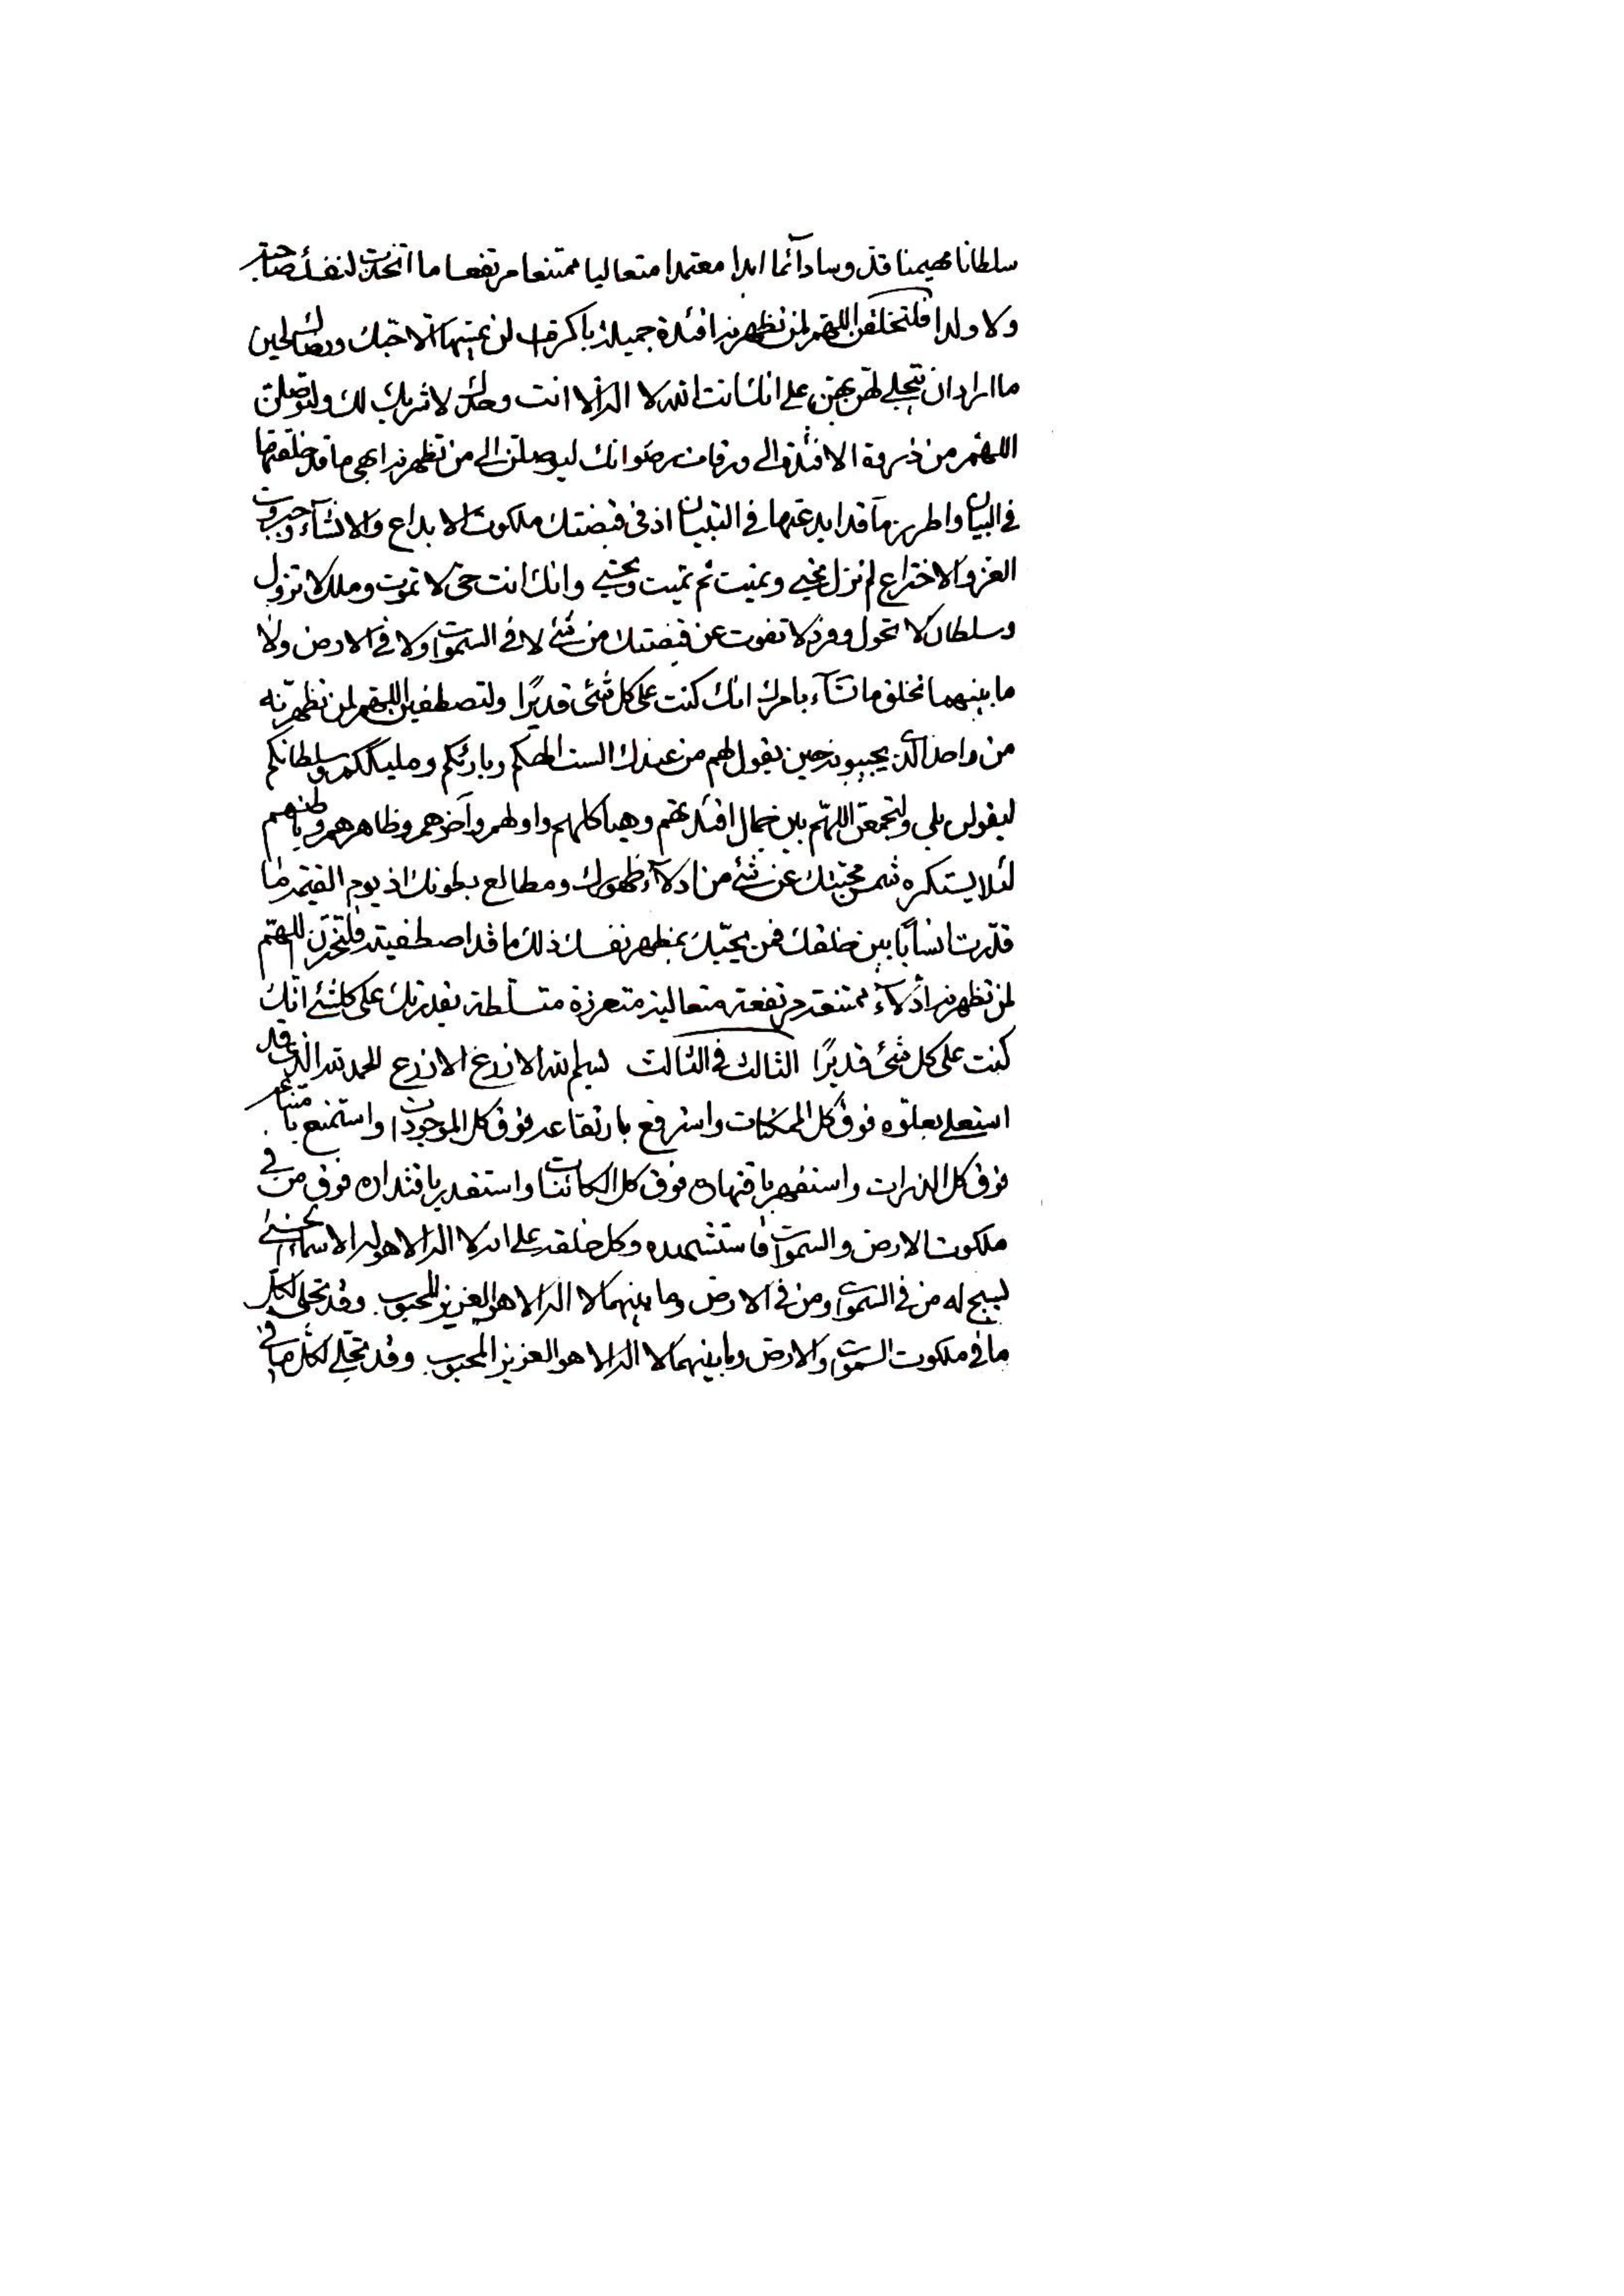 سلطانا مهيمنا قدوسا دآئما ابدا معتمدا متعاليا ممتنعا مرتفعا ما اتخذت لنفسك صاحبة
ولا ولدا فلتخلقن اللهم لمن تظهرنه افئدة جميلة باكرة لن يمسها الا حبك ورضائك لحين
ما اراد ان يتجلى لهن بهن على انك انت الله لا اله الا انت وحدك لا شريك لك ولتوصلن
اللهم من ذروة الافئدة الى ورقات رضوانك ليوصلن الى من تظهرنه ابهى ما قد خلقتها
فى البيان واطرز مآ قد ابدعتها فى التبيان اذ فى قبضتك ملكوت الابداع والانشآء وجبروت
العز والاختراع لم تزل تحيي وتميت ثم تميت وتحيي وانك انت حى لا تموت وملك لا تزول
وسلطان لا تحول وفرد لا تفوت عن قبضتك من شئ لا فى السموات ولا فى الارض ولا
ما بينهما تخلق ما تشآء بامرك انك كنت على كل شئ قديرًا ولتصطفين اللهم لمن تظهرنه
من واحد الذى يجيبونه حين يقول لهم من عندك الست الهكم وبارئكم ومليككم وسلطانكم
ليقولن بلى ولتجمعن اللهم بين جمال افئدتهم وهياكلهم واولهم وآخرهم وظاهرهم وباطنهم
لئلا يستكره شمس محبتك عن شئ من ادلآء ظهورك ومطالع بطونك اذ يوم القيمة ما
قدرت انسابا بين خلقك فمن يحبك بمظهر نفسك ذلك ما قد اصطفيته فلتخزن اللهم
لمن تظهرنه ادلآء ممتنعة مرتفعة متعالية متعززة متسلطة بقدرتك على كلشئ انك
كنت على كل شئ قديرًا الثالث فى الثالث بسم الله الازرع الازرع الحمد لله الذى قد
استعلى بعلوه فوق كل الممكنات واسترفع بارتفاعه فوق كل الموجودات واستمنع بامتناعه
فوق كل الذرات واستقهر باقتهاره فوق كل الكائنات واستقدر باقتداره فوق من فى
ملكوت الارض والسموات فاستشهده وكل خلقه على انه لا اله الا هو له الاسماء الحسنى
يسبح له من فى السموات ومن فى الارض وما بينهما لا اله الا هو العزيز المحبوب وقد تجلى لكل
ما فى ملكوت السموات والارض وما بينهما لا اله الا هو العزيز المحبوب وقد تجلى لكل ما فى